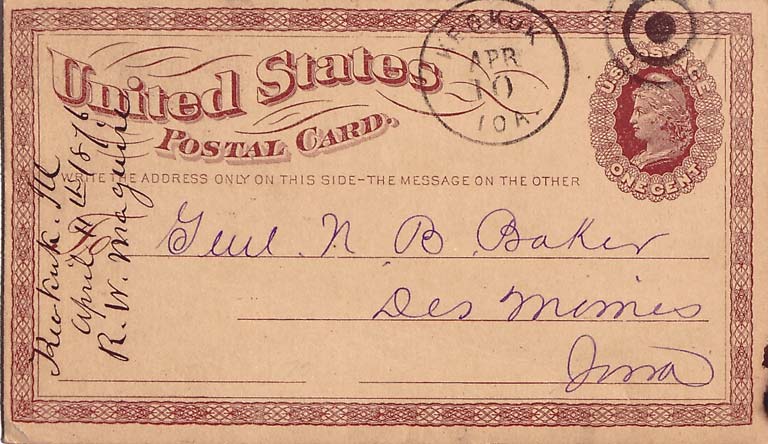 United States
POSTAL CARD.
KEOKUK
APR
10
IOA.
U.S. POSTAGE
ONE CENT
WRITE THE ADDRESS ONLY ON THIS SIDE-THE MESSAGE ON THE OTHER
To
Genl. N B Baker
Des Moines
Iowa
Keokuk.
April 1876
R. W. Maguire